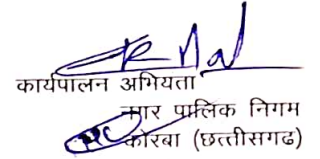 कार्यपालन अभियता
नगर पालिक निगम
कोरबा (छत्तीसगढ)